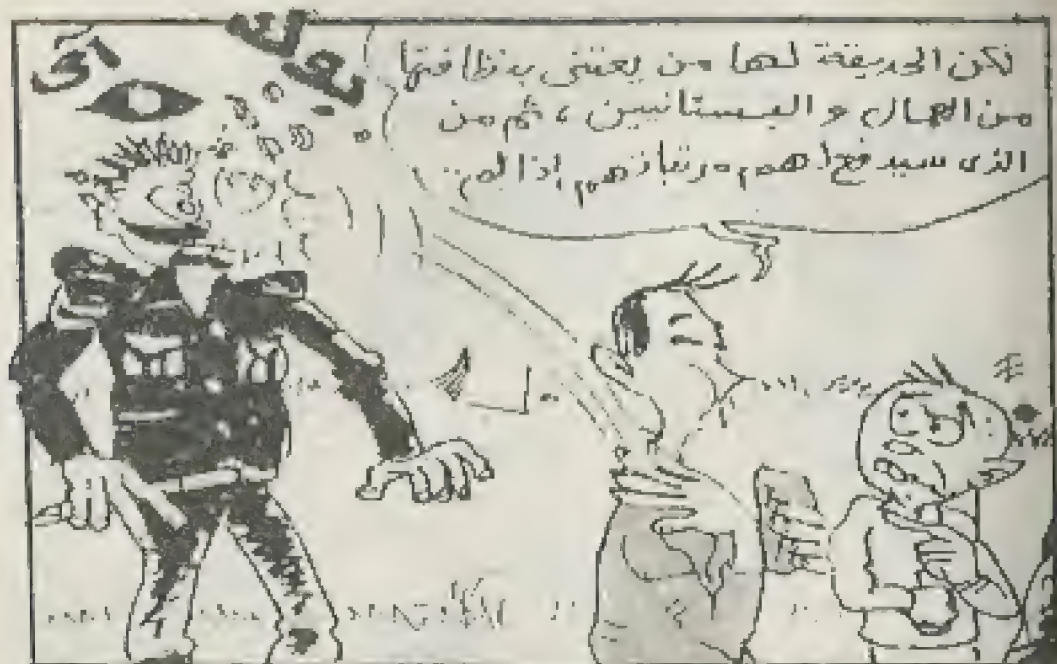 لكن الحديقة لها من يعتنى بنظافتها
من العمال و البستانيين ، ثم من
الذى سيدفع لهم مرتباتهم إذا لم..
آى